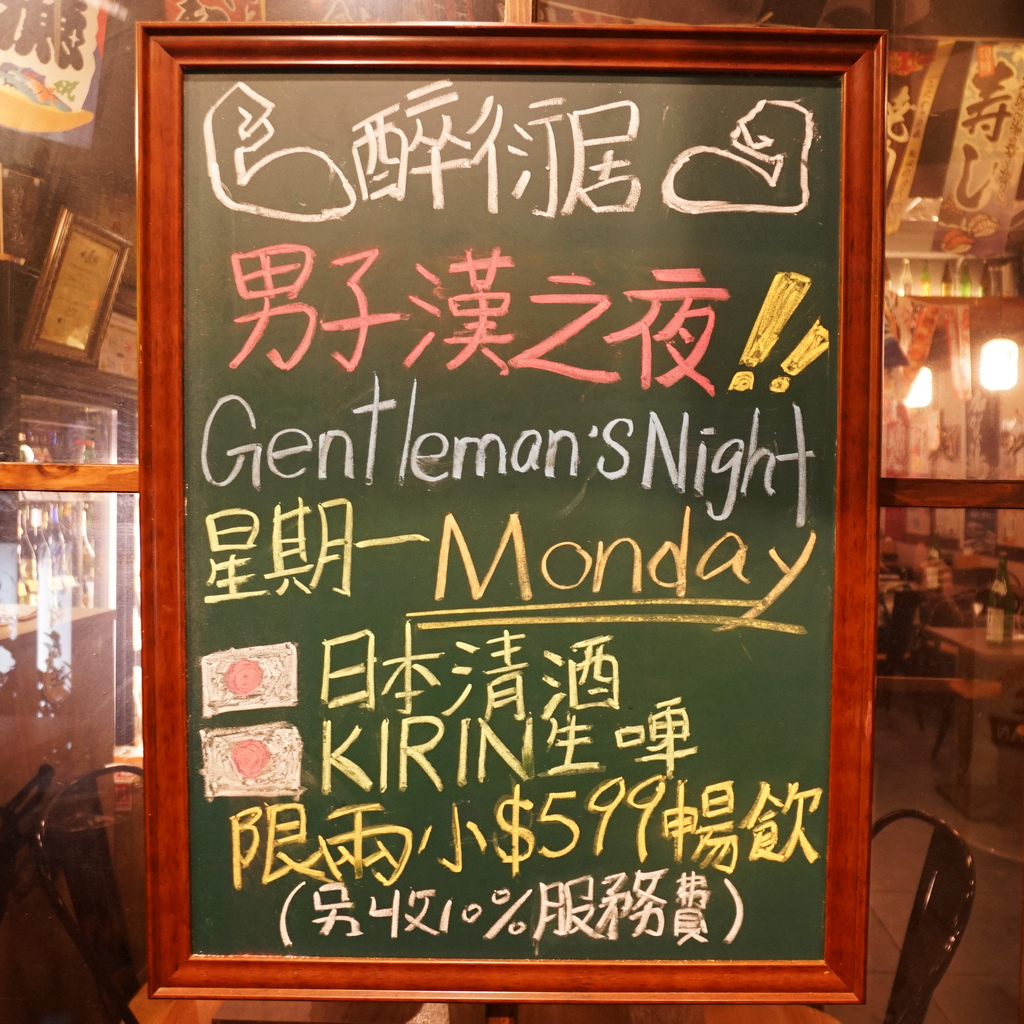 醉衍居
男子漢之夜!!
Gentleman's Night
星期一 Monday
日本清酒
KIRIN生啤
限兩小$599暢飲
(另收10%服務費)
寿し